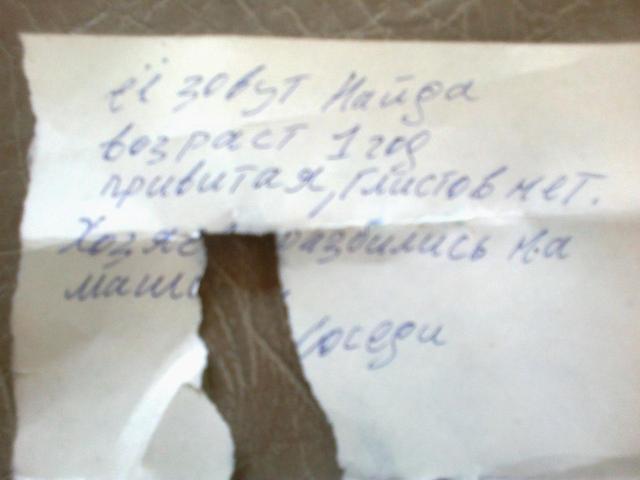 её зовут Найда
возраст 1 год
привитая, глистов нет.
Хозяе разбились на
маши
Соседи